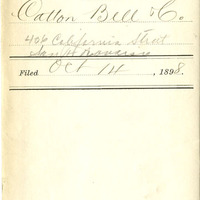 Catton Bell & Co.
406 California Street
San Francisco
Filed Oct 14, 1898.